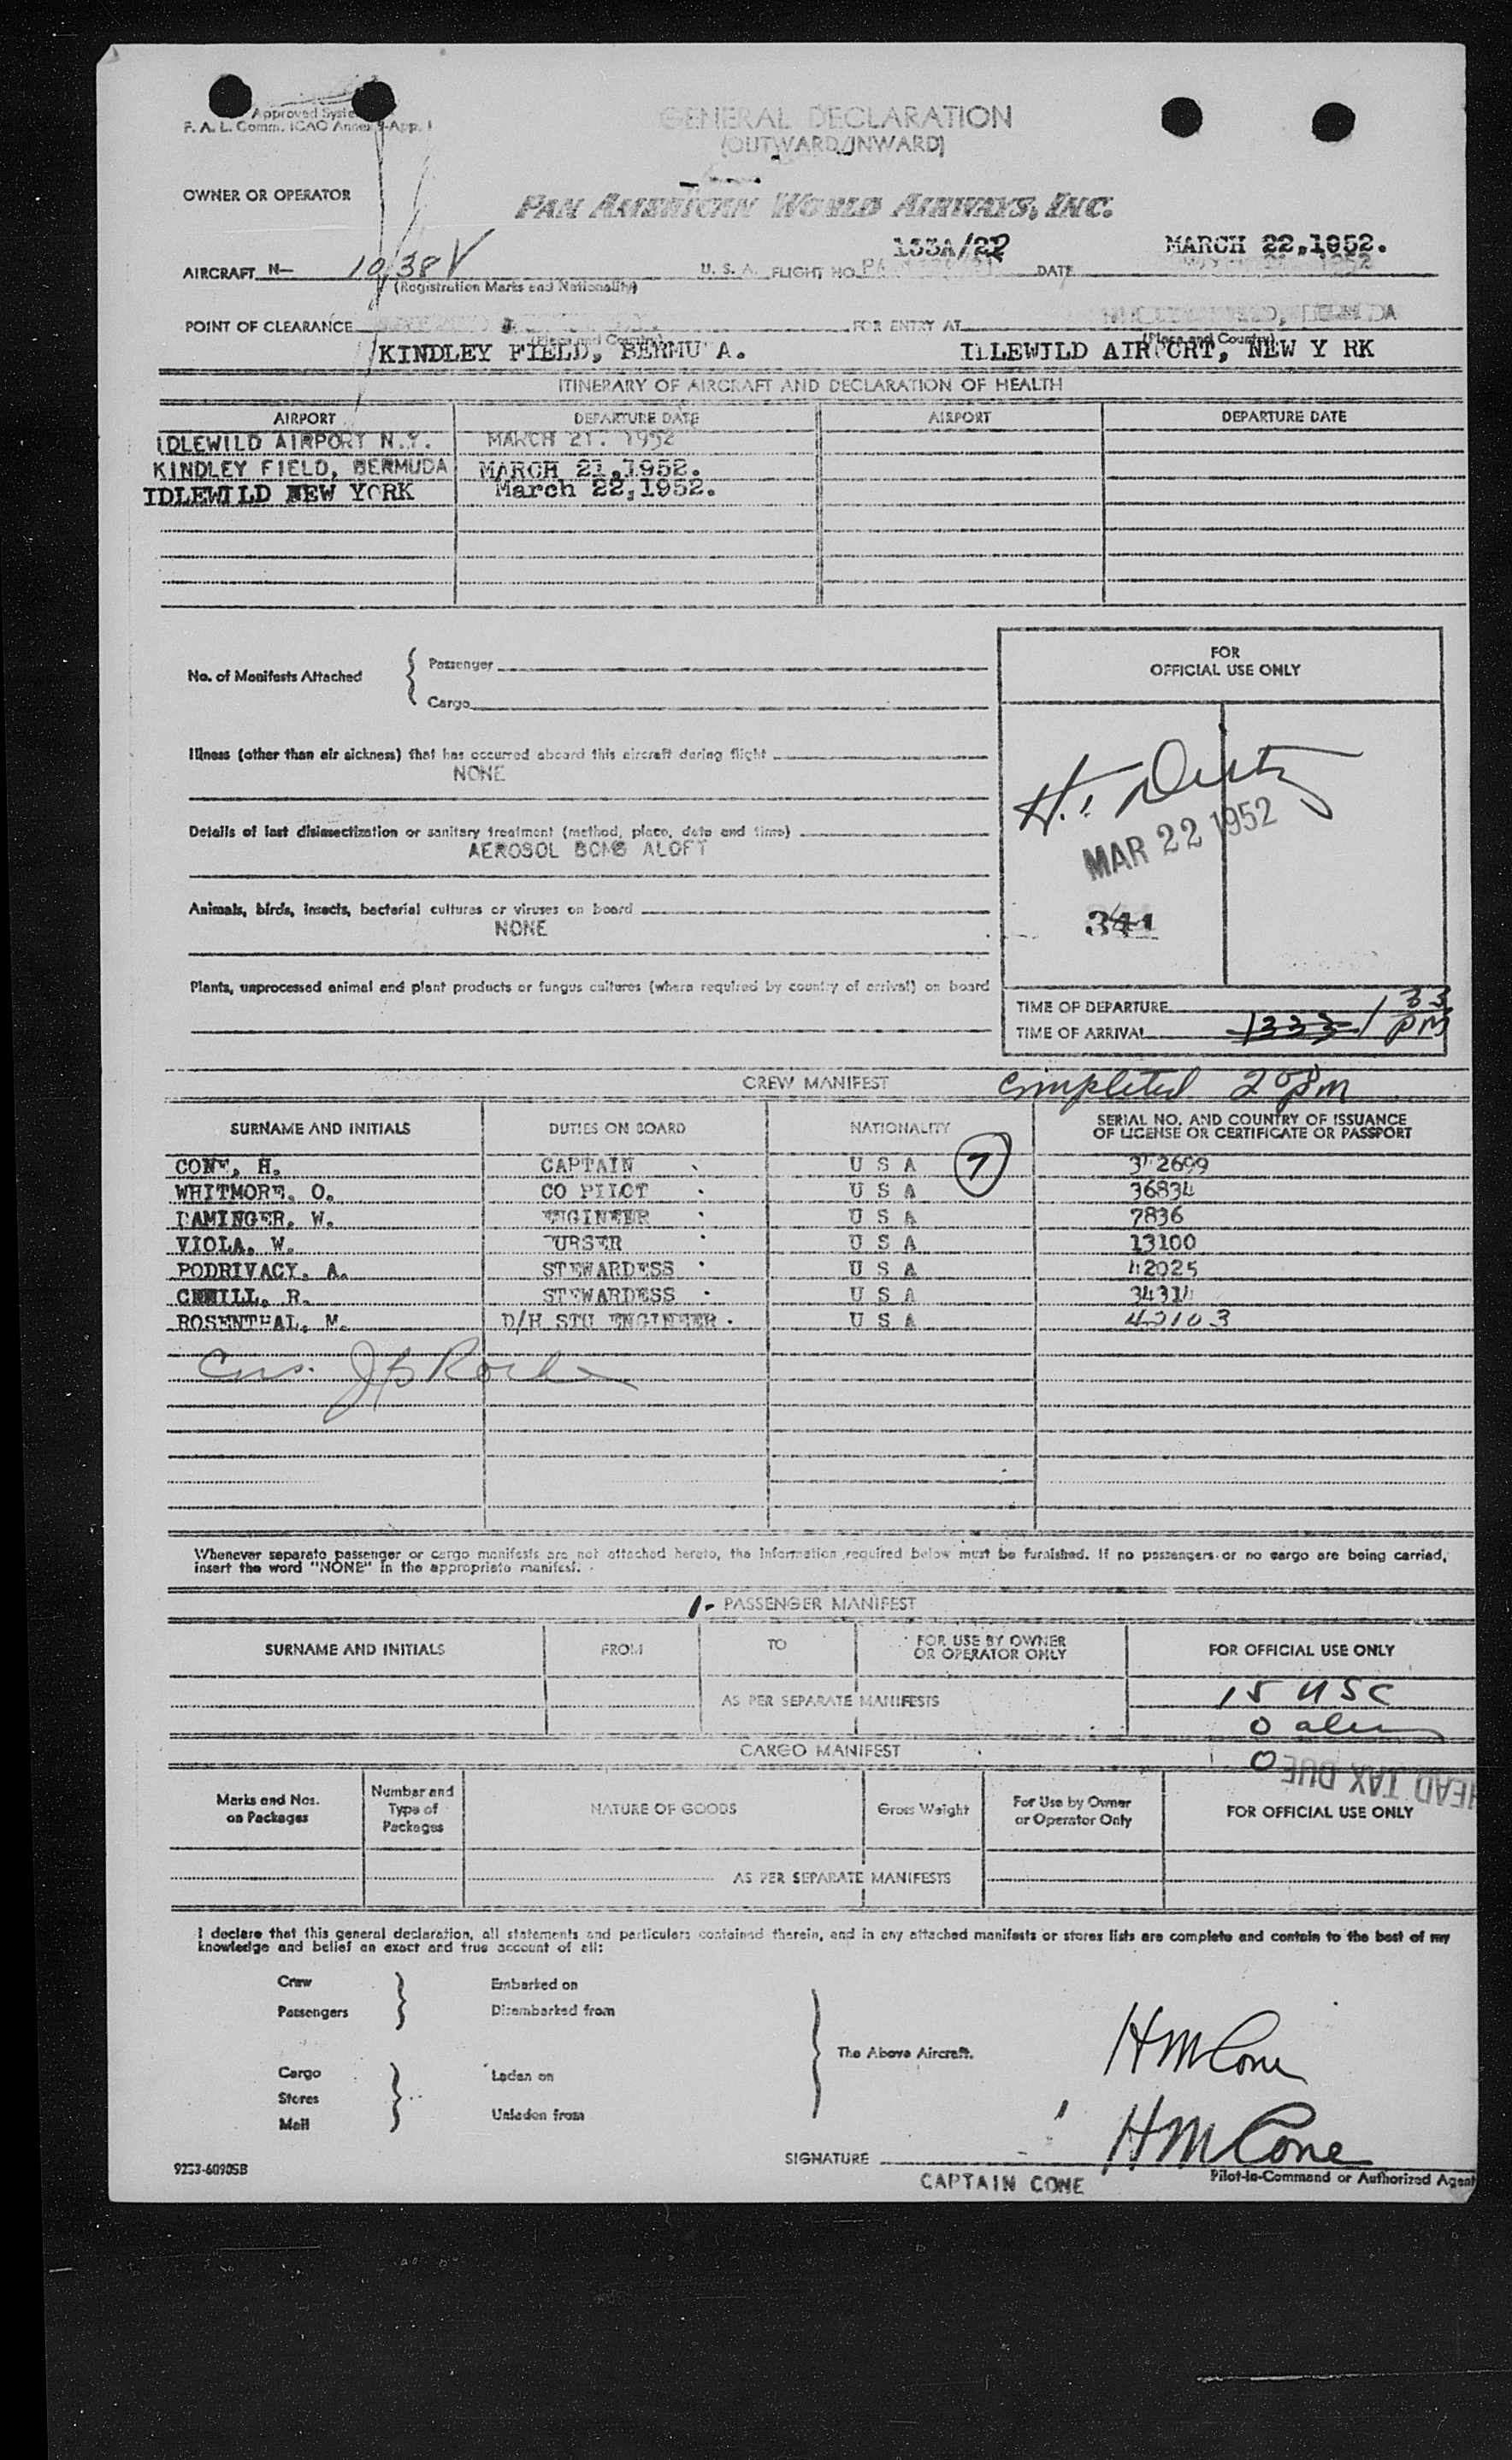 Approved System
F. A. L. Comm. ICAO Annex 9-App. 1
GENERAL DECLARATION
(OUTWARD/INWARD)
OWNER OR OPERATOR
PAN AMERICAN WORLD AIRWAYS, INC.
133A/22 MARCH 22,1952.
AIRCRAFT N— 1038V U. S. A. FLIGHT NO. DATE
(Registration Marks and Nationality)
POINT OF CLEARANCE FOR ENTRY AT
(Place and Country) (Place and Country)
KINDLEY FIELD, BERMU A. IDLEWILD AIRPORT, NEW Y RK
ITINERARY OF AIRCRAFT AND DECLARATION OF HEALTH
AIRPORT DEPARTURE DATE AIRPORT DEPARTURE DATE
IDLEWILD AIRPORT N.Y. MARCH 21. 1952
KINDLEY FIELD, BERMUDA MARCH 21,1952.
IDLEWILD NEW YORK March 22,1952.
FOR
OFFICIAL USE ONLY
No. of Manifests Attached
Passenger
Cargo
Illness (other than air sickness) that has occurred aboard this aircraft during flight
NONE
Details of last disinsectization or sanitary treatment (method, place, date and time)
AEROSOL BOMB ALOFT
MAR 22 1952
Animals, birds, insects, bacterial cultures or viruses on board
NONE
341
Plants, unprocessed animal and plant products or fungus cultures (where required by country of arrival) on board
TIME OF DEPARTURE
TIME OF ARRIVAL 1333 133 PM
CREW MANIFEST completed 208pm
SURNAME AND INITIALS DUTIES ON BOARD NATIONALITY SERIAL NO. AND COUNTRY OF ISSUANCE
OF LICENSE OR CERTIFICATE OR PASSPORT
CONE, H. CAPTAIN U S A 7 342699
WHITMORE, O. CO PILOT U S A 36834
DAMINGER, W. ENGINEER U S A 7836
VIOLA, W. PURSER U S A 13100
PODRIVACY, A. STEWARDESS U S A 42025
R. STEWARDESS U S A 34314
ROSENTHAL, M. D/H STU ENGINEER. U S A 42103
Whenever separate passenger or cargo manifests are not attached hereto, the information required below must be furnished. If no passengers or no cargo are being carried,
insert the word "NONE" in the appropriate manifest.
1- PASSENGER MANIFEST
SURNAME AND INITIALS FROM TO FOR USE BY OWNER
OR OPERATOR ONLY FOR OFFICIAL USE ONLY
AS PER SEPARATE MANIFESTS 15 USC
0 alien
CARGO MANIFEST 0
HEAD TAX DUE
Marks and Nos.
on Packages Number and
Type of
Packages NATURE OF GOODS Gross Weight For Use by Owner
or Operator Only FOR OFFICIAL USE ONLY
AS PER SEPARATE MANIFESTS
I declare that this general declaration, all statements and particulars contained therein, and in any attached manifests or stores lists are complete and contain to the best of my
knowledge and belief an exact and true account of all:
Crew Embarked on
Passengers Disembarked from
The Above Aircraft.
HM Cone
Cargo Laden on
Stores
Mail Unladen from
SIGNATURE HM Cone
CAPTAIN CONE Pilot-in-Command or Authorized Agent
9253-60905B